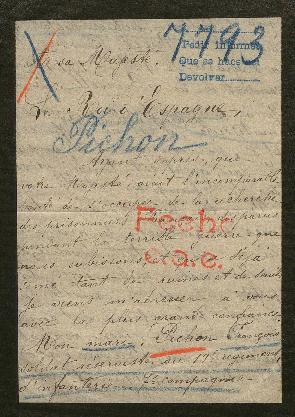 7793
Pedir informes
Que se hace
Devolver
A sa Majesté
Le Roi d'Espagne,
Pichon
Ayant appris que
votre Majesté avait l'incomparable
bonté de s'occuper de la recherche
des prisonniers
Fecho
pendant la terrible guerre que
nous subissons
c.a.e.
tant de ruines et de deuils
je viens m'adresser à vous
avec la plus grande confiance
Mon mari, Pichon François
soldat réserviste au régiment
d'infanterie compagnie